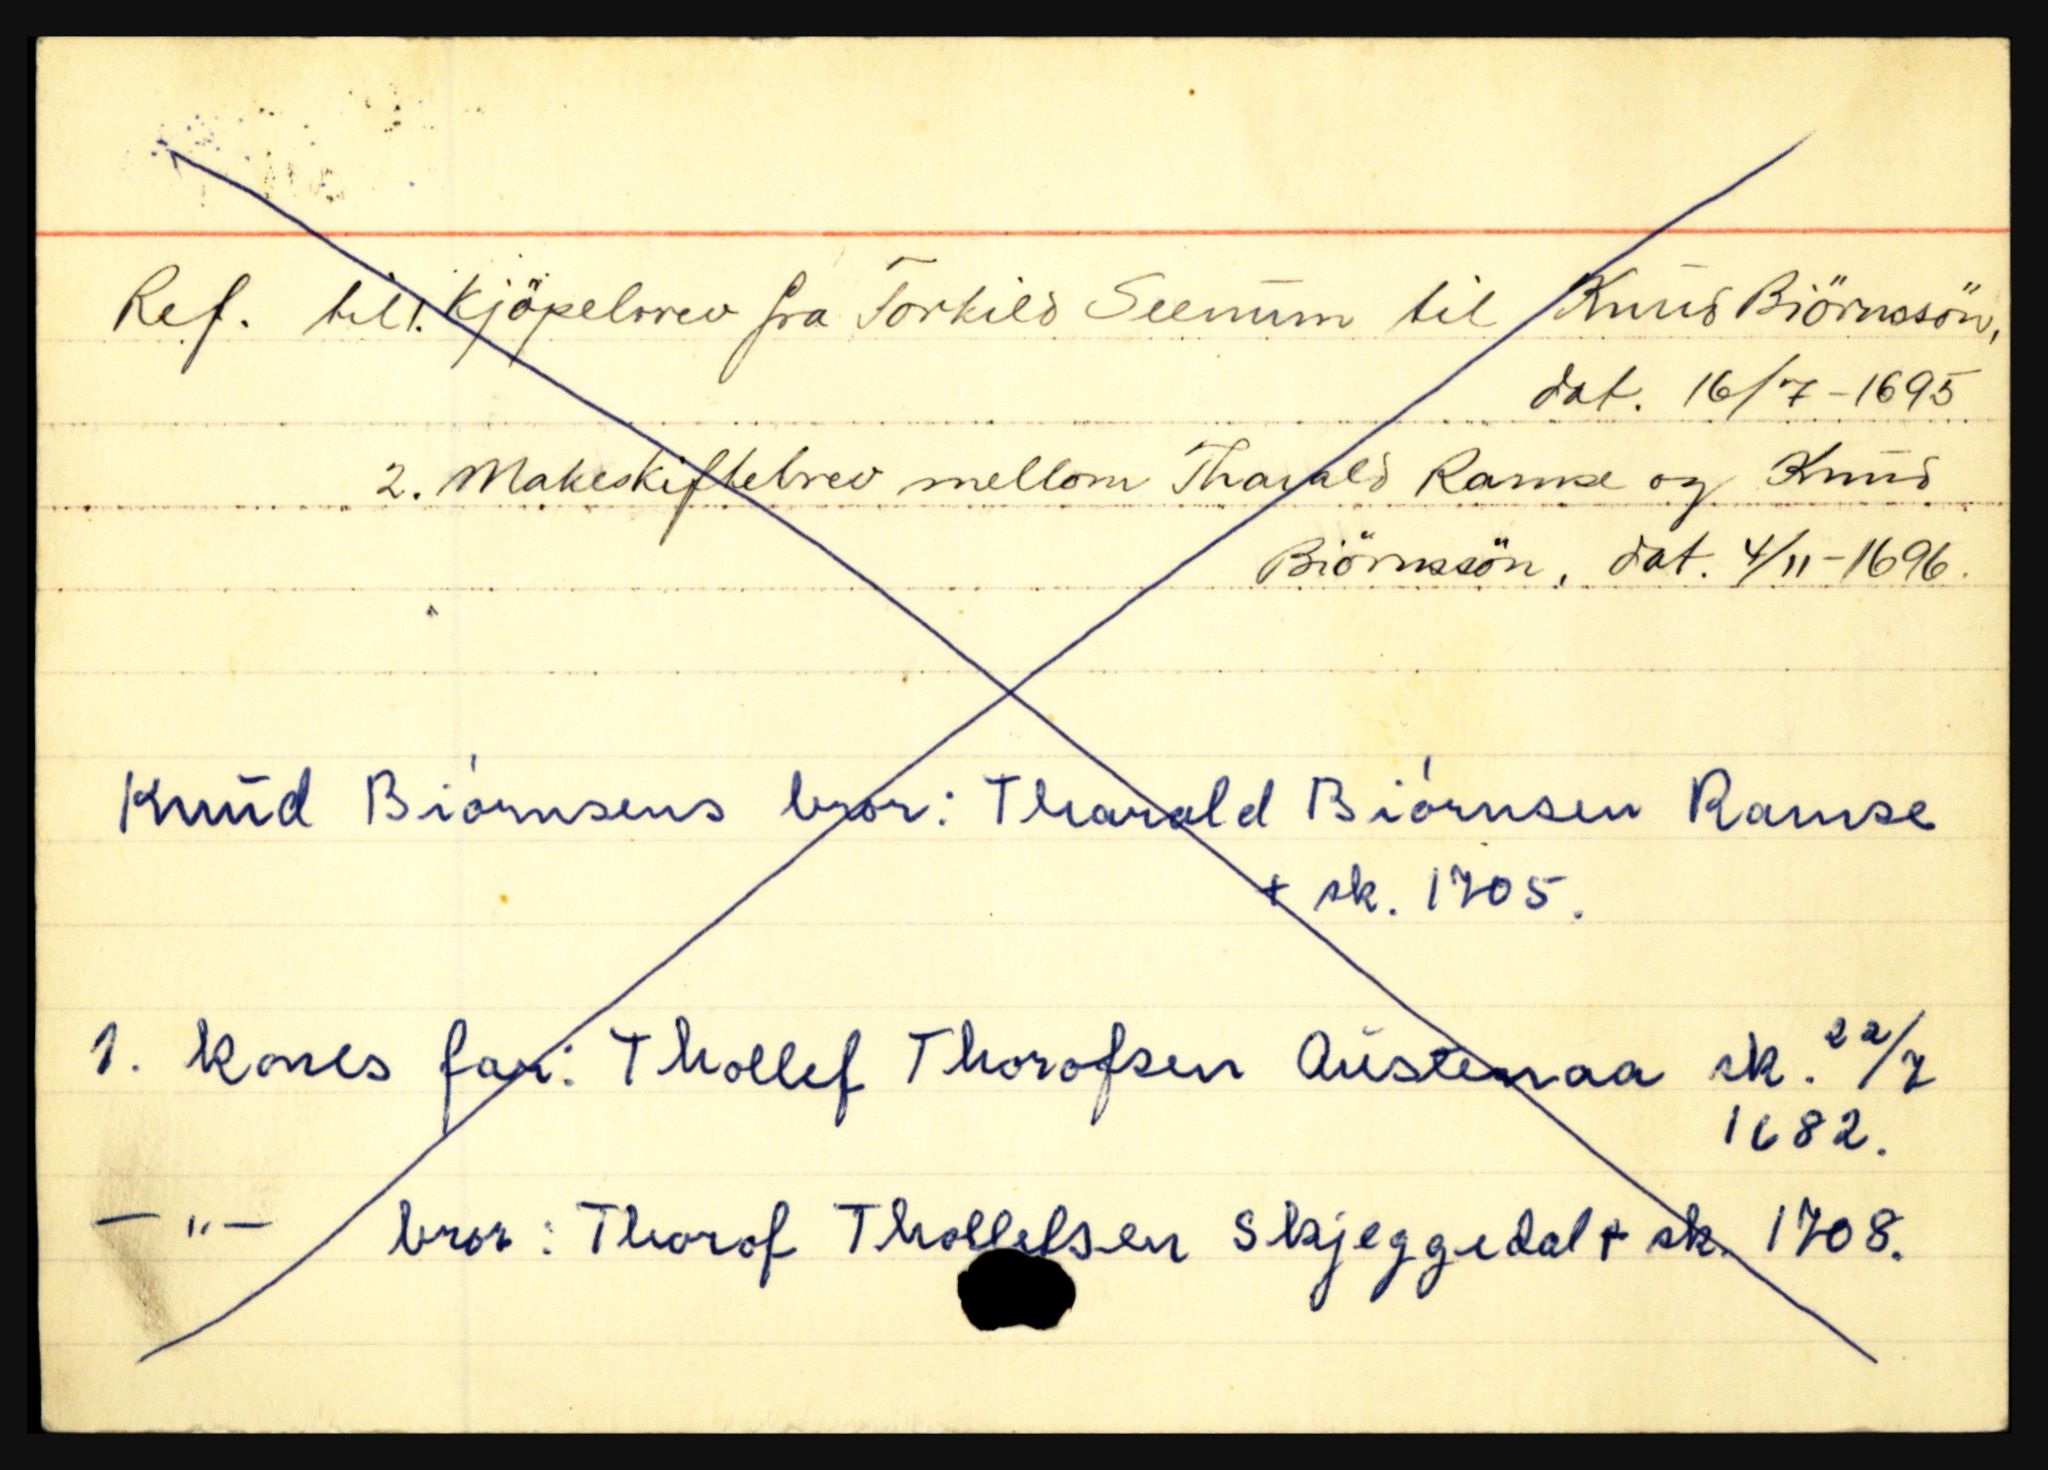 Ref. til 1. Kjöpebrev fra Torkild Seenum til Knud Biörnssön,
dat. 16/7-1695
2. Makeskiftebrev mellom Tharald Ramse og Knud
Biörnssön, dat. 4/11-1696.
Knud Biórnsens bror: Tharald Biórnsen Ramse
+ sk. 1705.
1. kones far: Thollef Thorofsen Austenaa sk. 22/7
1682.
- " - bror: Thorof Thollefsen Skjeggedal + sk. 1708.